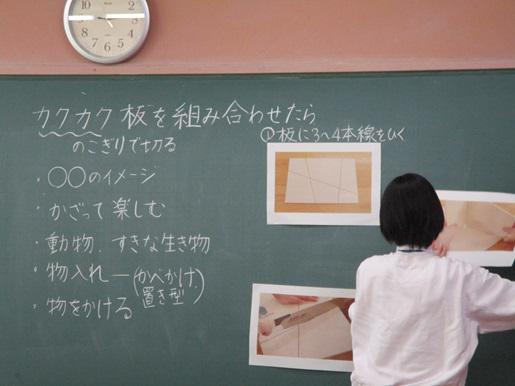 カクカク板を組み合わせたら
のこぎりで切る
・〇〇のイメージ
・かざって楽しむ
・動物、すきな生き物
・物入れー(かべかけ、置き型)
・物をかける
①板に3〜4本線をひく